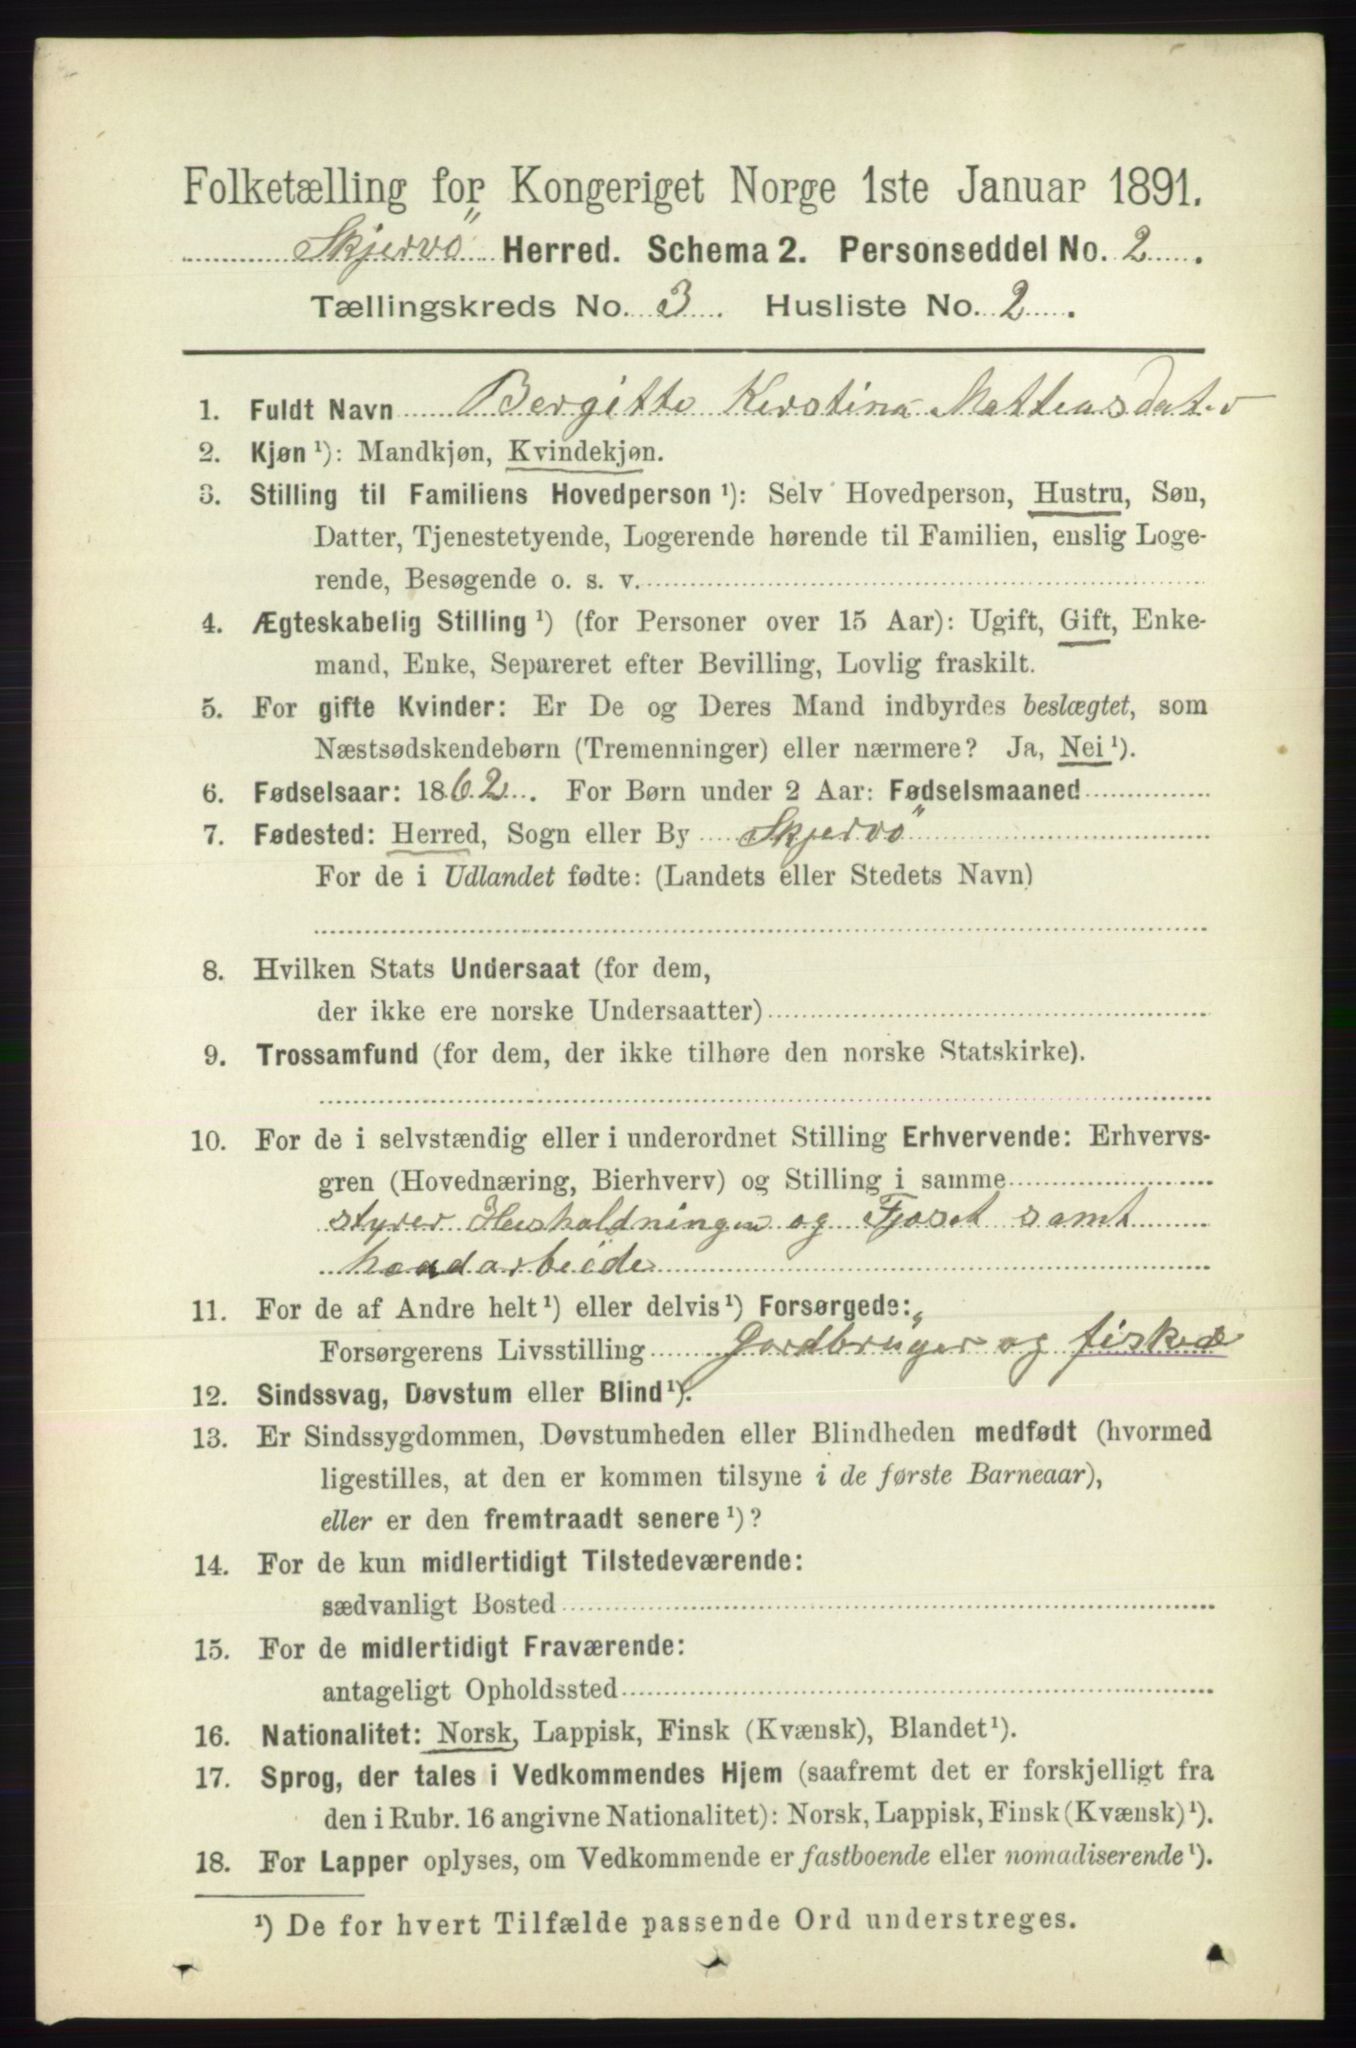 Folketælling for Kongeriget Norge 1ste Januar 1891.
Skjervö Herred. Schema 2. Personseddel No. 2.
Tællingskreds No. 3. Husliste No. 2.
1. Fuldt Navn Bergitte Kerstina Matteusdater
2. Kjøn ¹): Mandkjøn, Kvindekjøn.
3. Stilling til Familiens Hovedperson ¹): Selv Hovedperson, Hustru, Søn,
Datter, Tjenestetyende, Logerende hørende til Familien, enslig Loge-
rende, Besøgende o. s. v.
4. Ægteskabelig Stilling ¹) (for Personer over 15 Aar): Ugift, Gift, Enke-
mand, Enke, Separeret efter Bevilling, Lovlig fraskilt.
5. For gifte Kvinder: Er De og Deres Mand indbyrdes beslægtet, som
Næstsødskendebørn (Tremenninger) eller nærmere? Ja, Nei ¹).
6. Fødselsaar: 1862. For Børn under 2 Aar: Fødselsmaaned
7. Fødested: Herred, Sogn eller By Skjervö
For de i Udlandet fødte: (Landets eller Stedets Navn)
8. Hvilken Stats Undersaat (for dem,
der ikke ere norske Undersaatter)
9. Trossamfund (for dem, der ikke tilhøre den norske Statskirke).
10. For de i selvstændig eller i underordnet Stilling Erhvervende: Erhvervs-
gren (Hovednæring, Bierhverv) og Stilling i samme
styrer Husholdningen og Fjøset samt
haandarbeide
11. For de af Andre helt ¹) eller delvis ¹) Forsørgede:
Forsørgerens Livsstilling Gordbruger og fisker
12. Sindssvag, Døvstum eller Blind ¹).
13. Er Sindssygdommen, Døvstumheden eller Blindheden medfødt (hvormed
ligestilles, at den er kommen tilsyne i de første Barneaar),
eller er den fremtraadt senere ¹)?
14. For de kun midlertidigt Tilstedeværende:
sædvanligt Bosted
15. For de midlertidigt Fraværende:
antageligt Opholdssted
16. Nationalitet: Norsk, Lappisk, Finsk (Kvænsk), Blandet ¹).
17. Sprog, der tales i Vedkommendes Hjem (saafremt det er forskjelligt fra
den i Rubr. 16 angivne Nationalitet): Norsk, Lappisk, Finsk (Kvænsk) ¹).
18. For Lapper oplyses, om Vedkommende er fastboende eller nomadiserende ¹).
¹) De for hvert Tilfælde passende Ord understreges.